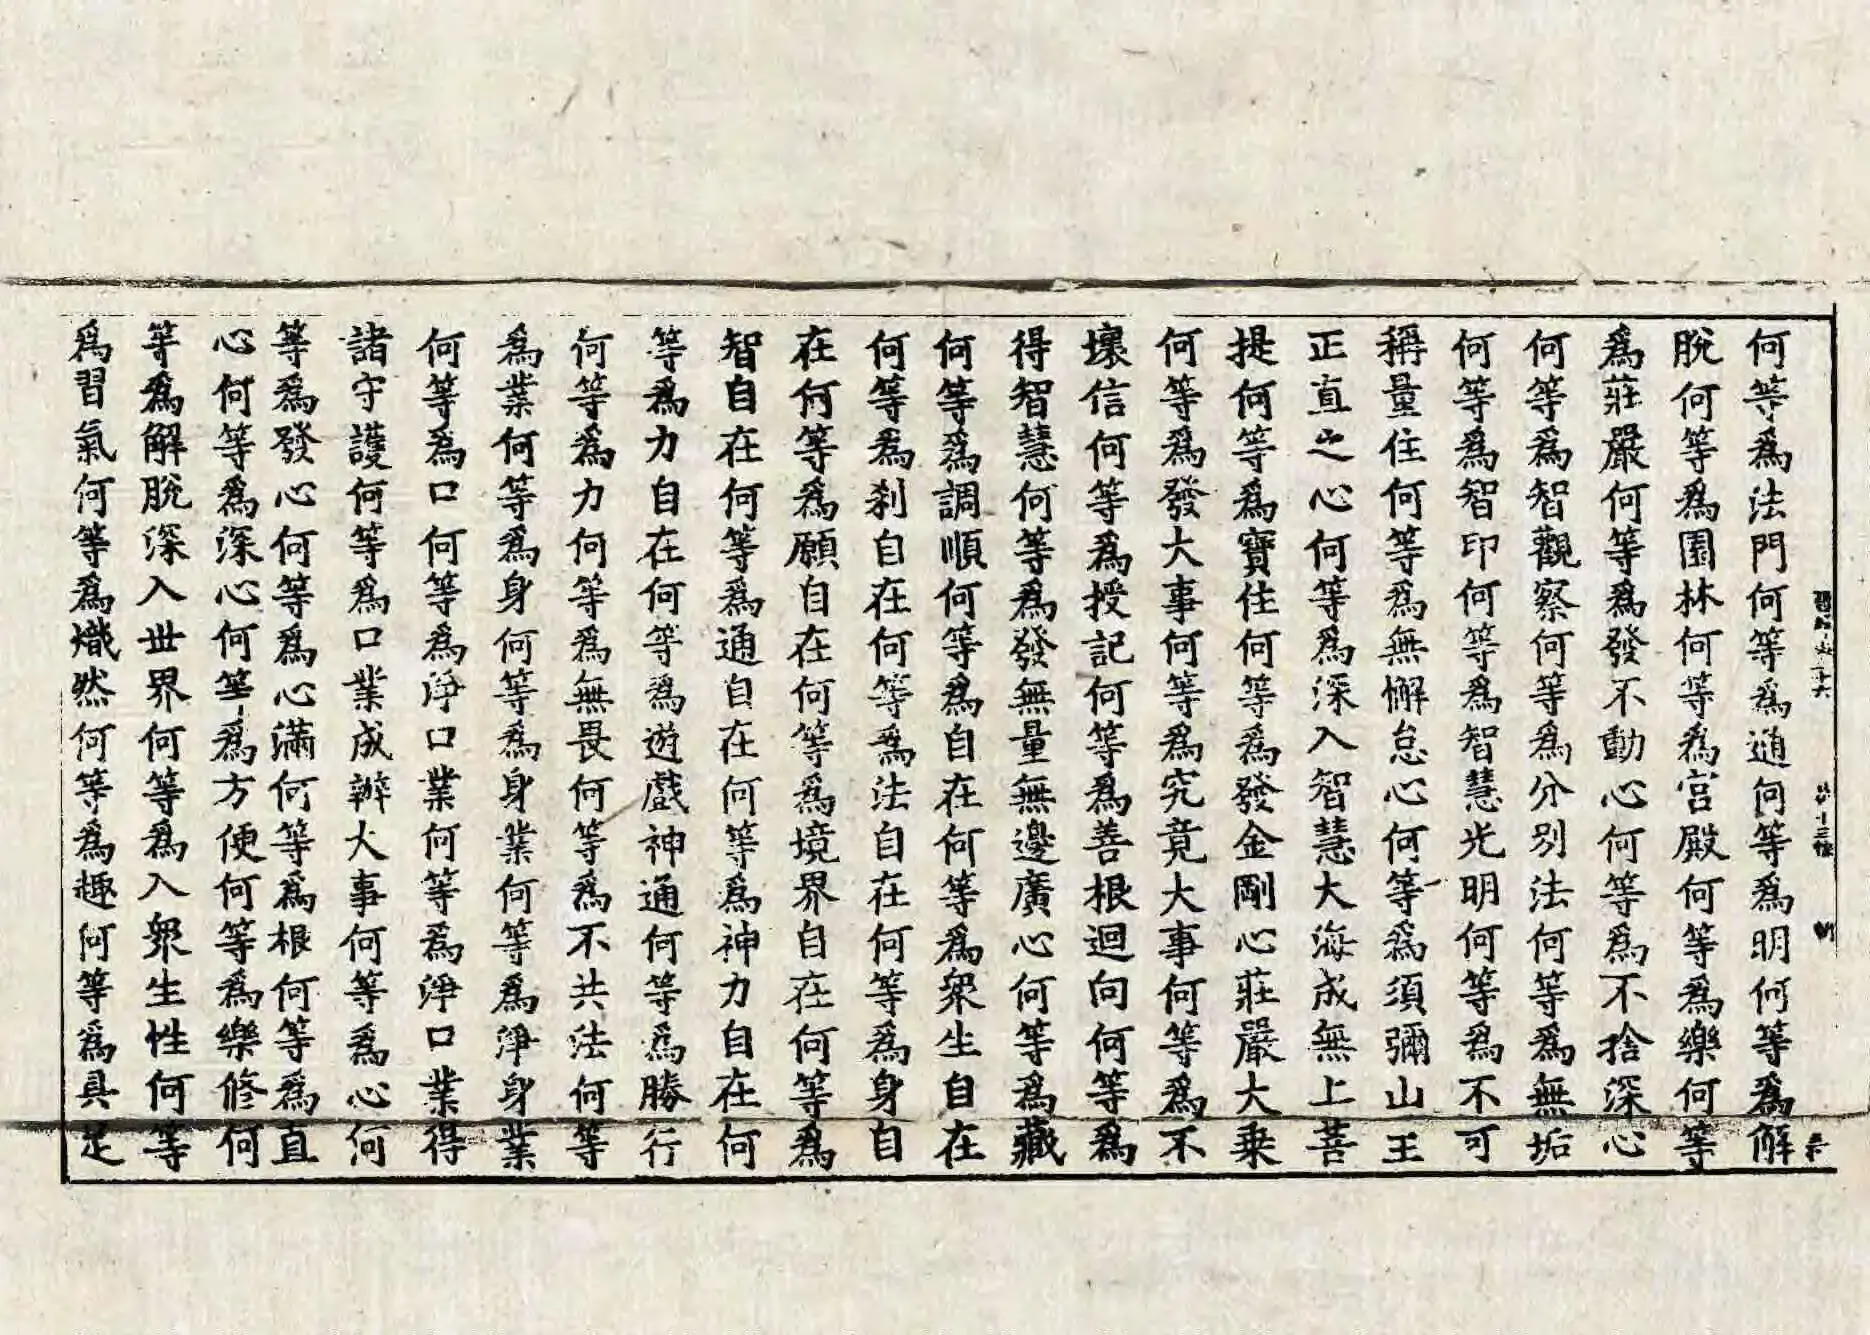 何等爲法門何等爲通何等爲明何等爲解
脫何等爲園林何等爲宮殿何等爲樂何等
爲莊嚴何等爲發不動心何等爲不捨深心
何等爲智觀察何等爲分別法何等爲無垢
何等爲智印何等爲智慧光明何等爲不可
稱量住何等爲無懈怠心何等爲須彌山王
正直之心何等爲深入智慧大海成無上菩
提何等爲寶住何等爲發金剛心莊嚴大乗
何等爲發大事何等爲究竟大事何等爲不
壞信何等爲授記何等爲善根迴向何等爲
得智慧何等爲發無量無邊廣心何等爲藏
何等爲調順何等爲自在何等爲衆生自在
何等爲刹自在何等爲法自在何等爲身自
在何等爲願自在何等爲境界自在何等爲
智自在何等爲通自在何等爲神力自在何
等爲力自在何等爲遊戲神通何等爲勝行
何等爲力何等爲無畏何等爲不共法何等
爲業何等爲身何等爲身業何等爲淨身業
何等爲口何等爲淨口業何等爲淨口業得
諸守護何等爲口業成辦大事何等爲心何
等爲發心何等爲心滿何等爲根何等爲直
心何等爲深心何等爲方便何等爲樂修何
等爲解脫深入世界何等爲入衆生性何等
爲習氣何等爲熾然何等爲趣何等爲具足